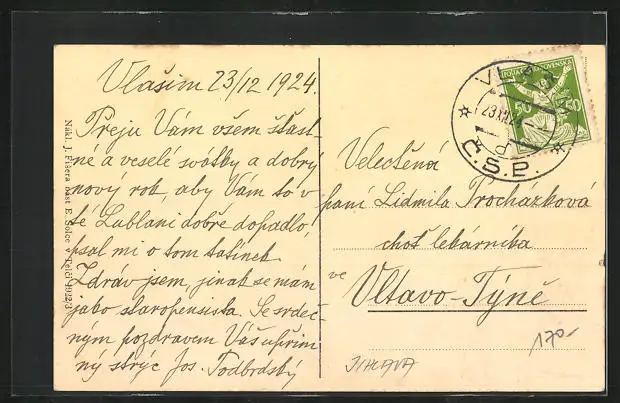 Vlašim 23/12 1924.
Přeju Vám všem šťast-
né a veselé svátky a dobrý
nový rok, aby Vám to v
té Lublani dobře dopadlo,
psal mi o tom tatínek
Zdráv jsem, jinak se mám
jako staropensista. Se srdeč-
ným pozdravem Váš upřím
ný strýc Jos. Podbrdský
Nákl. J. Fišera nást E. Šolce v Telči 1922/3
Č.S.P.
50 50
Velectěná
paní Lidmila Procházková
choť lekárníka
ve
Vltavo-Týně
JIHLAVA
170-